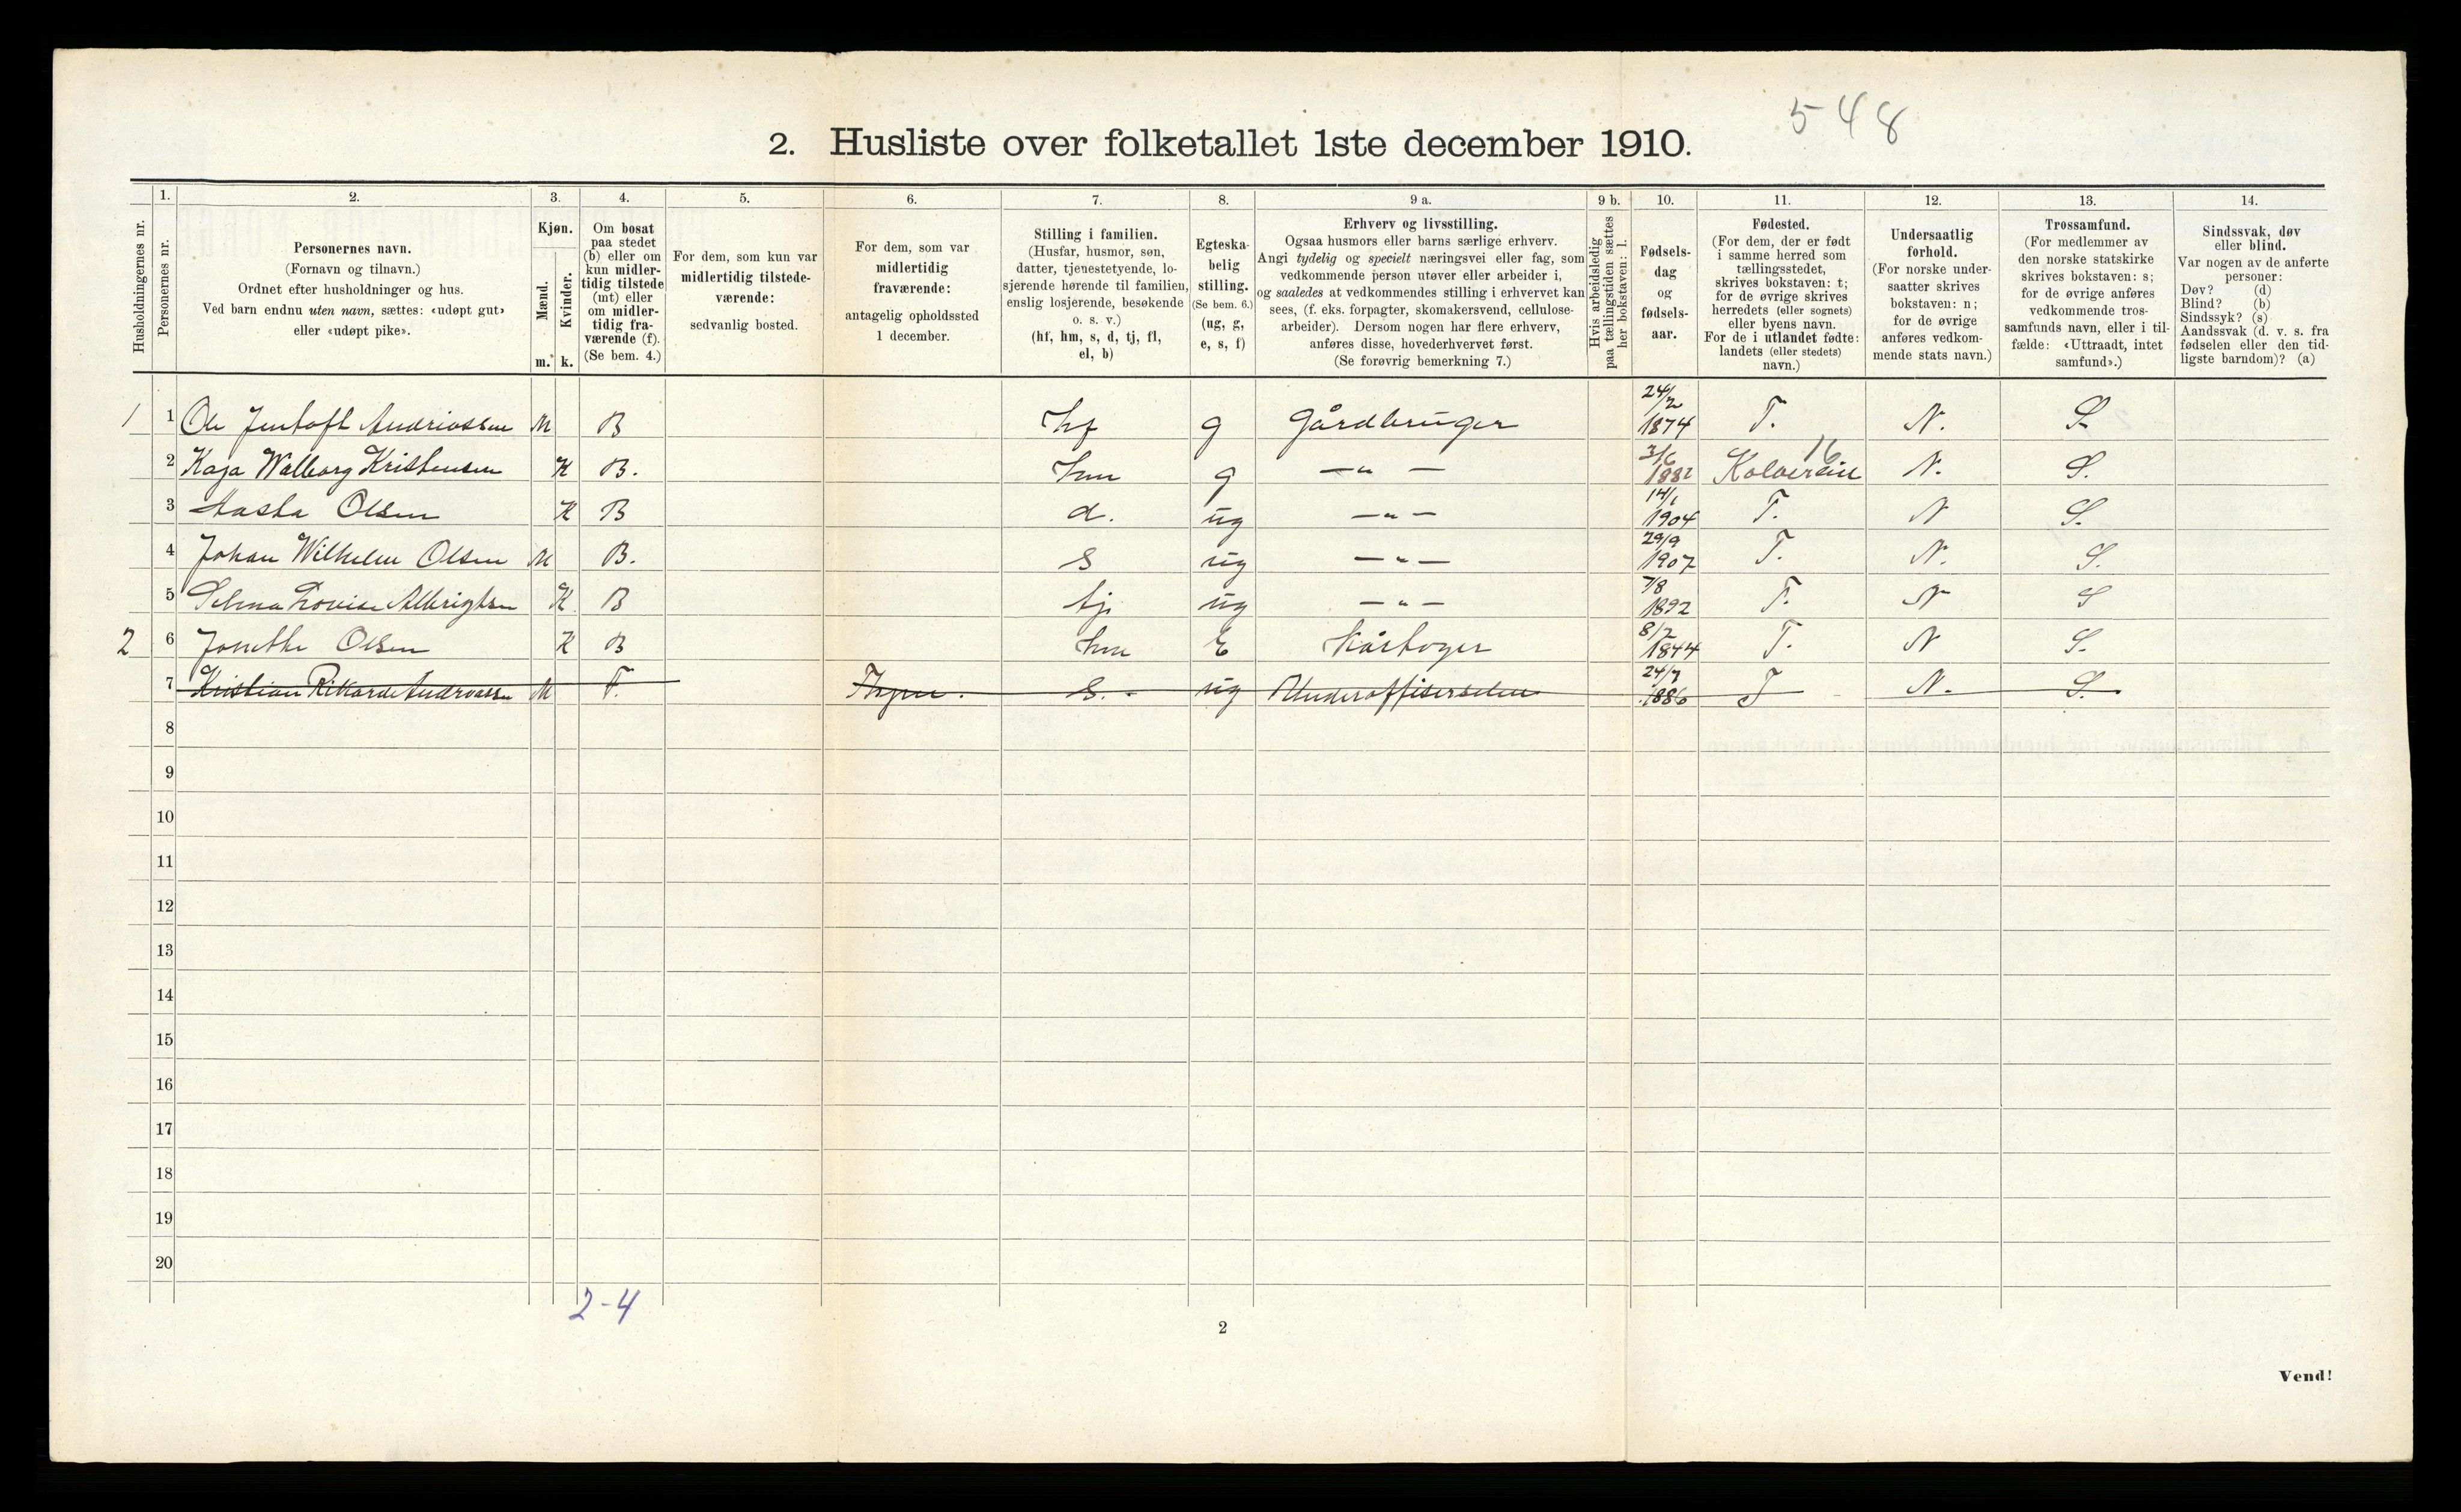 548
2. Husliste over folketallet 1ste december 1910.
Husholdningernes nr.
1.
Personernes nr.
2.
Personernes navn.
(Fornavn og tilnavn.)
Ordnet efter husholdninger og hus.
Ved barn endnu uten navn, sættes: «udøpt gut»
eller «udøpt pike».
3.
Kjøn.
Mænd.
m.
Kvinder.
k.
4.
Om bosat
paa stedet
(b) eller om
kun midler-
tidig tilstede
(mt) eller
om midler-
tidig fra-
værende (f).
(Se bem. 4.)
5.
For dem, som kun var
midlertidig tilstede-
værende:
sedvanlig bosted.
6.
For dem, som var
midlertidig
fraværende:
antagelig opholdssted
1 december.
7.
Stilling i familien.
(Husfar, husmor, søn,
datter, tjenestetyende, lo-
sjerende hørende til familien,
enslig losjerende, besøkende
o. s. v.)
(hf, hm, s, d, tj, fl,
el, b)
8.
Egteska-
belig
stilling.
(Se bem. 6.)
(ug, g,
e, s, f)
9 a.
Erhverv og livsstilling.
Ogsaa husmors eller barns særlige erhverv.
Angi tydelig og specielt næringsvei eller fag, som
vedkommende person utøver eller arbeider i,
og saaledes at vedkommendes stilling i erhvervet kan
sees, (f. eks. forpagter, skomakersvend, cellulose-
arbeider). Dersom nogen har flere erhverv,
anføres disse, hovederhvervet først.
(Se forøvrig bemerkning 7.)
9 b.
Hvis arbeidsledig
paa tællingstiden sættes
her bokstaven: l.
10.
Fødsels-
dag
og
fødsels-
aar.
11.
Fødested.
(For dem, der er født
i samme herred som
tællingsstedet,
skrives bokstaven: t;
for de øvrige skrives
herredets (eller sognets)
eller byens navn.
For de i utlandet fødte:
landets (eller stedets)
navn.)
12.
Undersaatlig
forhold.
(For norske under-
saatter skrives
bokstaven: n;
for de øvrige
anføres vedkom-
mende stats navn.)
13.
Trossamfund.
(For medlemmer av
den norske statskirke
skrives bokstaven: s;
for de øvrige anføres
vedkommende tros-
samfunds navn, eller i til-
fælde: «Uttraadt, intet
samfund».)
14.
Sindssvak, døv
eller blind.
Var nogen av de anførte
personer:
Døv? (d)
Blind? (b)
Sindssyk? (s)
Aandssvak (d. v. s. fra
fødselen eller den tid-
ligste barndom)? (a)
1 1 Ole Jentoft Andriassen M B hf g Gårdbruger 24/2 1874 T. N. S.
2 Kaja Walborg Kristensen K B. hm g — " — 3/6 1882 Kolvereid 16 N. S.
3 Aasta Olsen K B d. ug — " — 14/1 1904 T. N S.
4 Johan Wilhelm Olsen M B. s ug — " — 29/9 1907 T. N. S.
5 Selma Lovise Albrigtsen K B tj ug — " — 7/8 1892 T. N S
2 6 Jonethe Olsen K B hm E Kårtoger 8/2 1844 T. N S.
7 Kristian Rikard Andreassen M F. S. ug 24/7 1886 T N. S.
8
9
10
11
12
13
14
15
16
17
18
19
20
2-4
2
Vend!